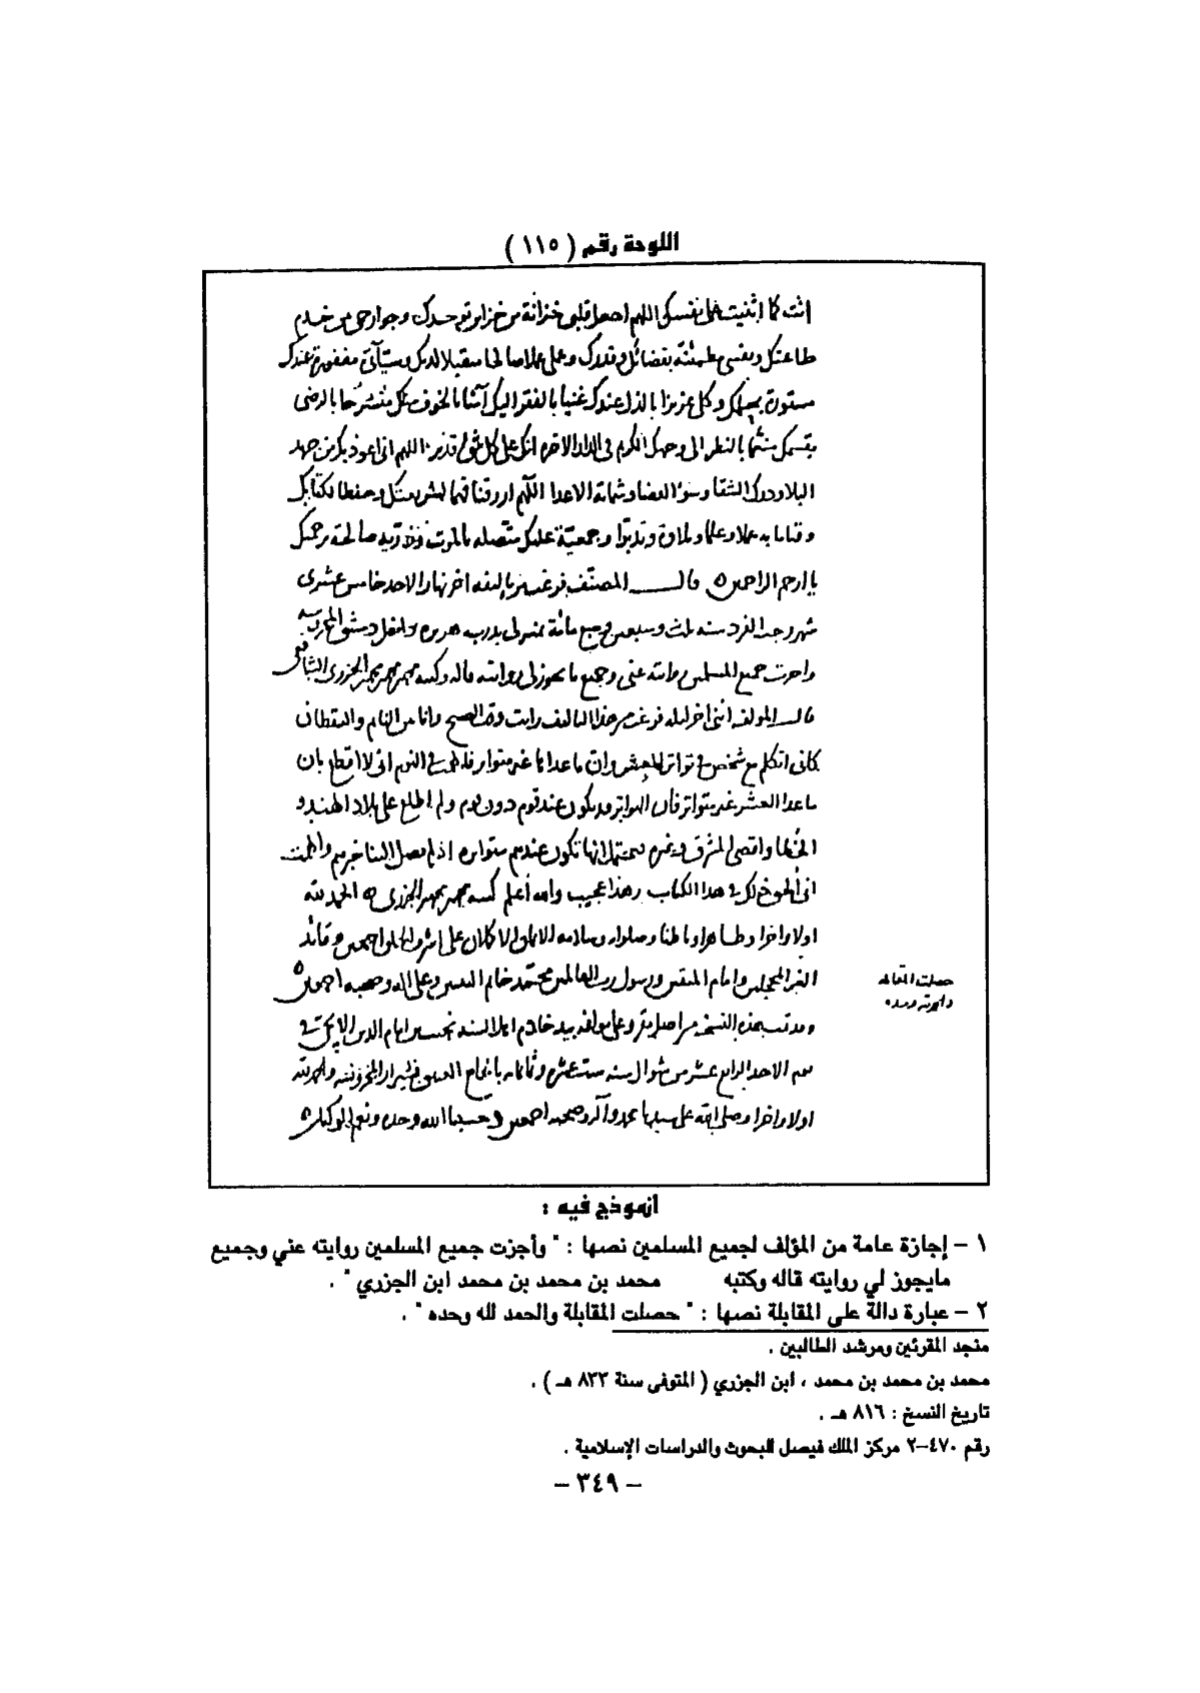 اللوحة رقم ( ١١٥ )
انت كما اثنيت على نفسك اللهم اجعل قلبي خزانة من خزاين توحيدك وجوارحي من خدم
طاعتك ونفسي مطمئنة بقضائك وقدرك وعملي عملا صالحا متقبلا لديك وسيآتي مغفورة عندك
مستورة بحلمك وكل عزيزا بالذل عندك غنيا بالفقر اليك آمنا بالخوف منك منشرحا بالرضى
بقسمك منعما بالنظر الى وجهك الكريم في الدار الاخرة انك على كل شي قدير اللهم انى اعوذ بك من جهد
البلا ودرك الشقا وسوء القضا وشماتة الاعدا اللهم ارزقنا فهما لشريعتك وحفظا لكتابك
وقياما به عملا وعلما وتلاوة وتدبرا وجمعية عليك متصله بالموت صالحة برحمتك
يا ارحم الراحمين قال المصنف فرغت من تاليفه اخر نهار الاحد خامس عشرى
شهر رجب الفرد سنه ثلث وسبعين وسبع مائة بمنزلى بدرب هريره داخل دمشق المحروسه
واجزت جميع المسلمين روايته عنى وجميع ما يجوز لى روايته قاله وكتبه محمد بن محمد بن محمد الجزرى الشافعى
قال المولف انني اخر ليله فرغت من هذا التاليف رايت وقت الصبح وانا بين النائم واليقظان
كانى اتكلم مع شخص فى تواتر العشر وان ما عداها غير متواتر فالهمت فى النوم انى لا اقطع بان
ما عدا العشر غير متواتر فان التواتر قد يكون عند قوم دون قوم ولم اطلع على بلاد الهند و
الخطا واقصى المشرق وغيره فيحتمل انها تكون عندهم متواتره اذ لم يصل الينا خبرهم والهمت
انى ألحق ذلك فى هذا الكتاب وهذا عجيب والله أعلم كتبه محمد بن محمد الجزرى الحمد لله
اولا واخرا وظاهرا وباطنا وصلواته وسلامه الاتمان الاكملان على اشرف الخلق اجمعين وقائد
الغر المحجلين وامام المتقين ورسول رب العالمين محمد خاتم النبيين وعلى اله وصحبه اجمعين
وقد تمت هذه النسخة من اصل مقروء على مولفه بيد خادم اهل السنه بن امام الدين
يوم الاحد الرابع عشر من شوال سنه ست عشره وثمانمايه بالجامع العتيق فى شيراز المحروسه والحمد لله
اولا واخرا وصلى الله على سيدنا محمد وآله وصحبه اجمعين وحسبنا الله وحده ونعم الوكيل
حصلت المقابله
والحمد لله وحده
أنموذج فيه :
١ – إجازة عامة من المؤلف لجميع المسلمين نصها : " وأجزت جميع المسلمين روايته عني وجميع
مايجوز لي روايته قاله وكتبه محمد بن محمد بن محمد ابن الجزري " .
٢ – عبارة دالة على المقابلة نصها : " حصلت المقابلة والحمد لله وحده " .
منجد المقرئين ومرشد الطالبين .
محمد بن محمد بن محمد ، ابن الجزري ( المتوفى سنة ٨٣٣ هـ ) .
تاريخ النسخ : ٨١٦ هـ .
رقم ٤٧٠–٢ مركز الملك فيصل للبحوث والدراسات الإسلامية .
– ٣٤٩ –